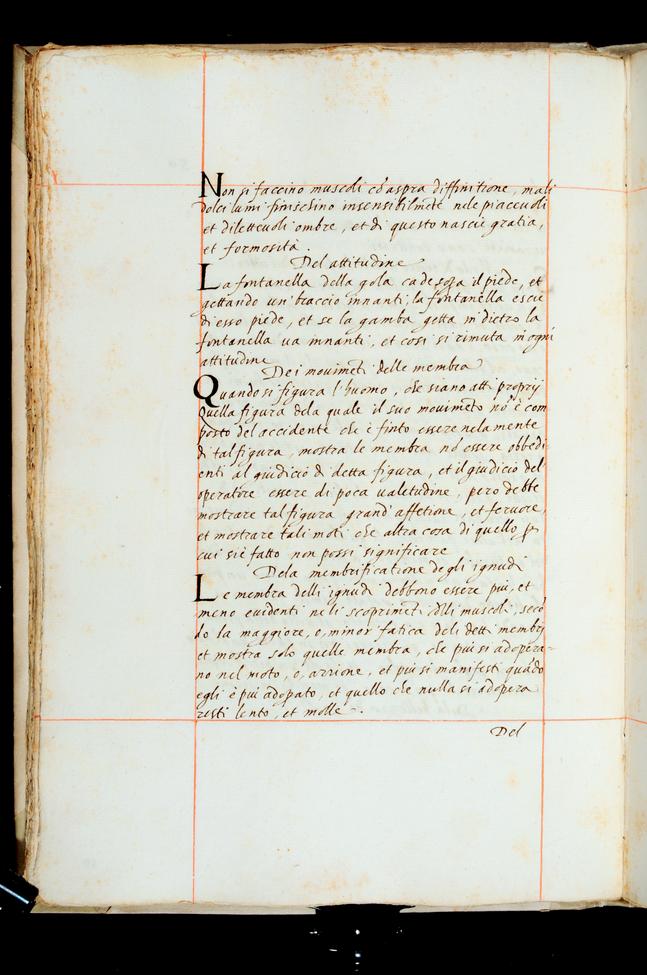 Non si faccino muscoli cõ aspra diffinitione, mali
dolci lumi finischino insensibilmẽte nele piaceuoli
et diletteuoli ombre, et di questo nasciè gratia,
et formosità.
Del attitudine
La fontanella della gola cade sopra il piede, et
gettando un' braccio innanti, la fontanella escie
di esso piede, et se la gamba getta in' dietro la
fontanella ua innanti, et cosi si rimuta in' ogni
attitudine
Dei mouimẽti delle membra
Quando si figura l'huomo, che siano atti proprij
quella figura dela quale il suo mouimẽto nõ è com
posto del accidente che è finto essere nela mente
di tal figura, mostra le membra nõ essere obbedi-
enti al giudicio di detta figura, et il giudicio del
operatore essere di poca ualetudine, pero debbe
mostrare tal figura grand' affetione, et feruore,
et mostrare tali moti che altra cosa di quello p
cui sie fatto non possi significare
Dela membrificatione degli ignudi
Le membra delli ignudi debbono essere piu, et
meno euidenti neli scoprimẽti delli muscoli, secõ
do la maggiore, o, minor fatica deli detti membrj
et mostra solo quelle membra, che piu si adopera-
no nel moto, o, attione, et piu si manifesti quãdo
egli è piu adopato, et quello che nulla si adopera
resti lento, et molle.
Del